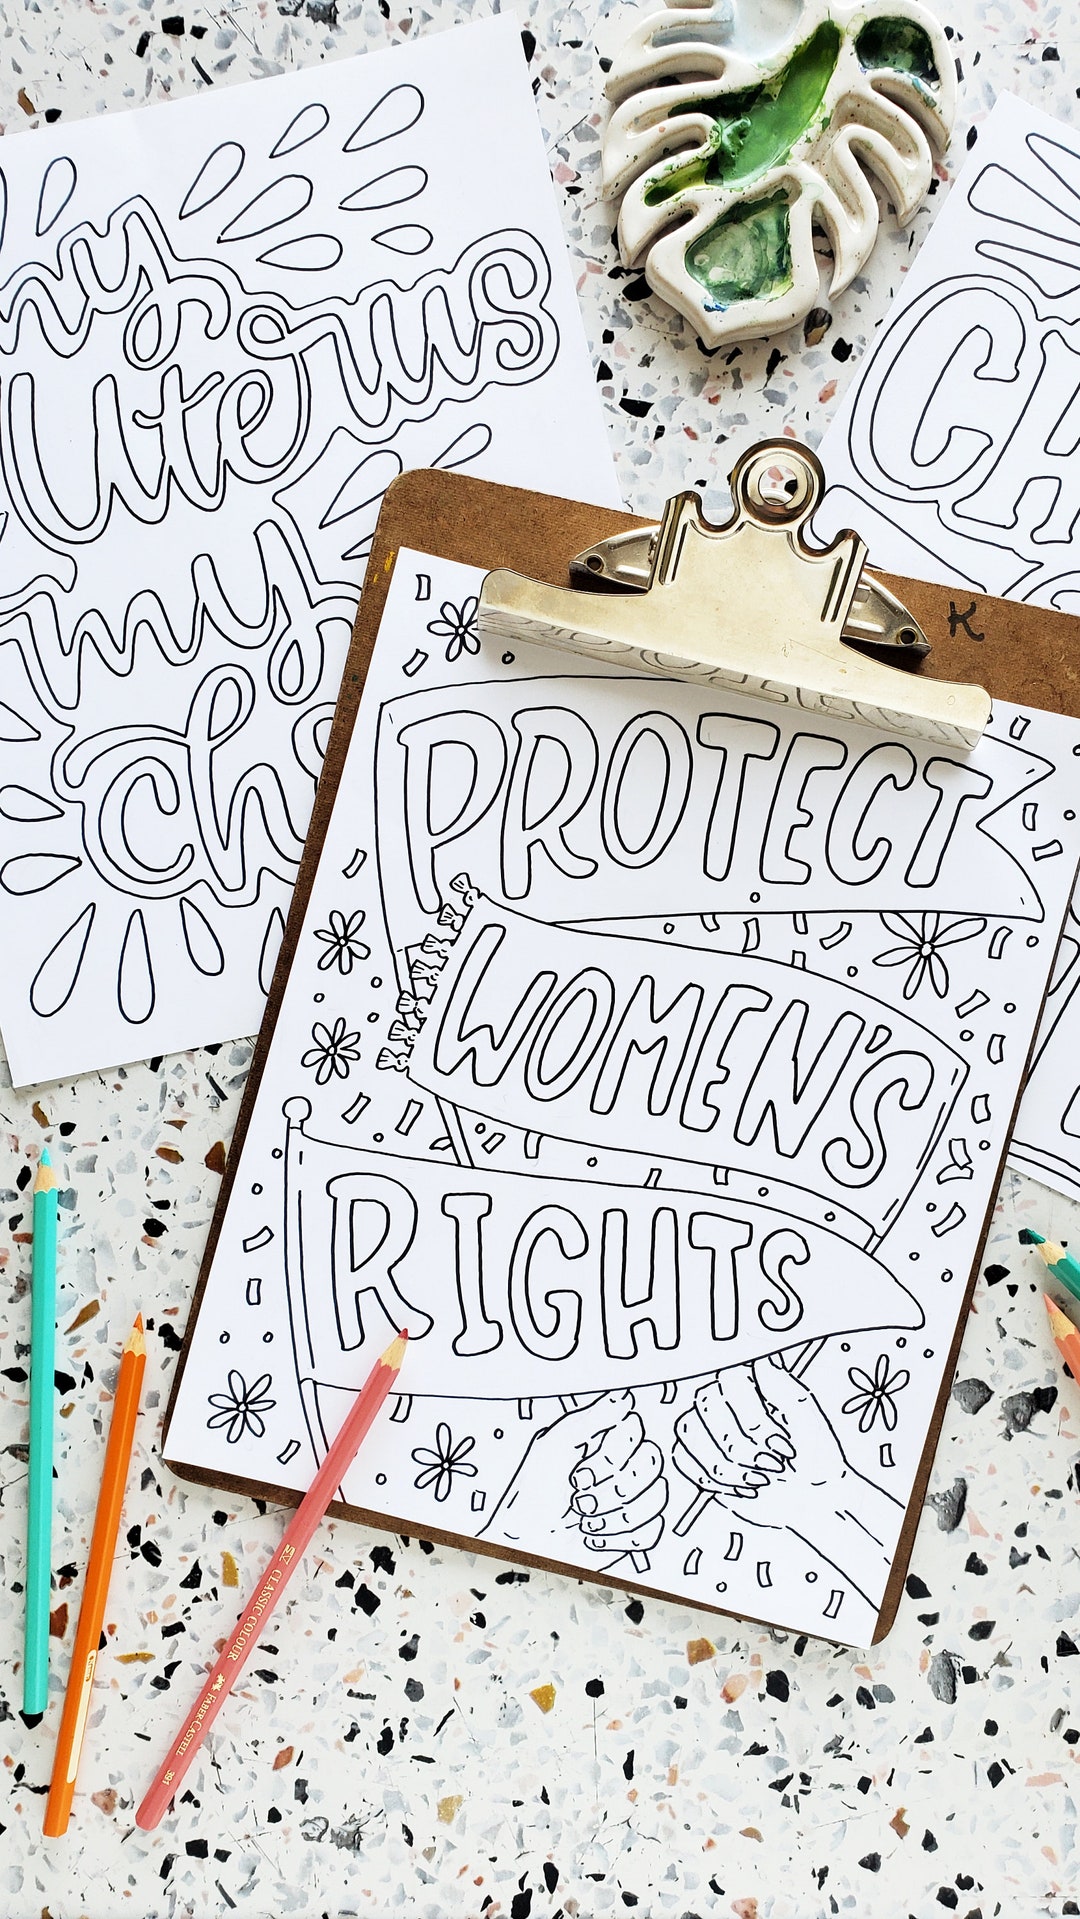 my
Uterus
my
ch
CH
K
PROTECT
WOMEN'S
RIGHTS
CLASSIC COLOUR
FABER-CASTELL
391